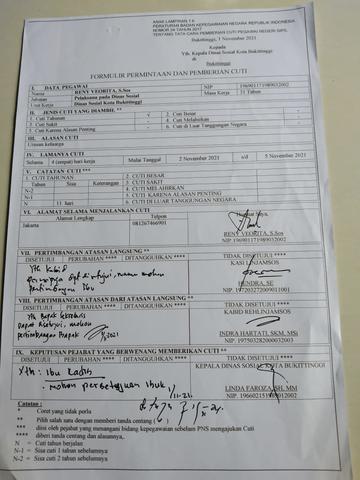 ANAK LAMPIRAN 1.b
PERATURAN BADAN KEPEGAWAIAN NEGARA REPUBLIK INDONESIA
NOMOR 24 TAHUN 2017
TENTANG TATA CARA PEMBERIAN CUTI PEGAWAI NEGERI SIPIL
Bukittinggi, 1 November 2021
Kepada
Yth. Kepala Dinas Sosial Kota Bukittinggi
di
Bukittinggi
FORMULIR PERMINTAAN DAN PEMBERIAN CUTI
I. DATA PEGAWAI
Nama RENY VEORITA, S.Sos NIP 196901171989032002
Jabatan Pelaksana pada Dinas Sosial Masa Kerja 31 Tahun
Unit Kerja Dinas Sosial Kota Bukittinggi
II. JENIS CUTI YANG DIAMBIL **
1. Cuti Tahunan √ 2. Cuti Besar
3. Cuti Sakit 4. Cuti Melahirkan
5. Cuti Karena Alasan Penting 6. Cuti di Luar Tanggungan Negara
III. ALASAN CUTI
Urusan keluarga
IV. LAMANYA CUTI
Selama 4 (empat) hari kerja Mulai Tanggal 2 November 2021 s/d 5 November 2021
V. CATATAN CUTI ***
1. CUTI TAHUNAN 2. CUTI BESAR
Tahun Sisa Keterangan 3. CUTI SAKIT
N-2 4. CUTI MELAHIRKAN
N-1 5. CUTI KARENA ALASAN PENTING
N 11 hari 6. CUTI DI LUAR TANGGUNGAN NEGARA
VI. ALAMAT SELAMA MENJALANKAN CUTI
Alamat Lengkap Telpon
Jakarta 081267466901 Hormat Saya,
RENY VEORITA, S.Sos
NIP. 196901171989032002
VII. PERTIMBANGAN ATASAN LANGSUNG **
DISETUJUI PERUBAHAN **** DITANGGUHKAN **** TIDAK DISETUJUI ****
Yth Kabid KASI LINJAMSOS
HENDRA, SE
NIP. 197202272009011001
VIII. PERTIMBANGAN ATASAN DARI ATASAN LANGSUNG **
DISETUJUI PERUBAHAN **** DITANGGUHKAN **** TIDAK DISETUJUI ****
Yth Bapak Sekretaris KABID REHLINJAMSOS
Dapat disetujui, mohon
pertimbangan Bapak
INDRA HARTATI, SKM, MSi
NIP. 197503282000032003
IX. KEPUTUSAN PEJABAT YANG BERWENANG MEMBERIKAN CUTI **
DISETUJUI PERUBAHAN **** DITANGGUHKAN **** TIDAK DISETUJUI ****
Yth: Ibu Kadis KEPALA DINAS SOSIAL KOTA BUKITTINGGI
- mohon persetujuan Ibuk
LINDA FAROZA, SH, MM
Catatan :
* Coret yang tidak perlu
** Pilih salah satu dengan memberi tanda centang ( √ )
*** diisi oleh pejabat yang menangani bidang kepegawaian sebelum PNS mengajukan Cuti
**** diberi tanda centang dan alasannya,
N = Cuti tahun berjalan
N-1 = Sisa cuti 1 tahun sebelumnya
N-2 = Sisa cuti 2 tahun sebelumnya